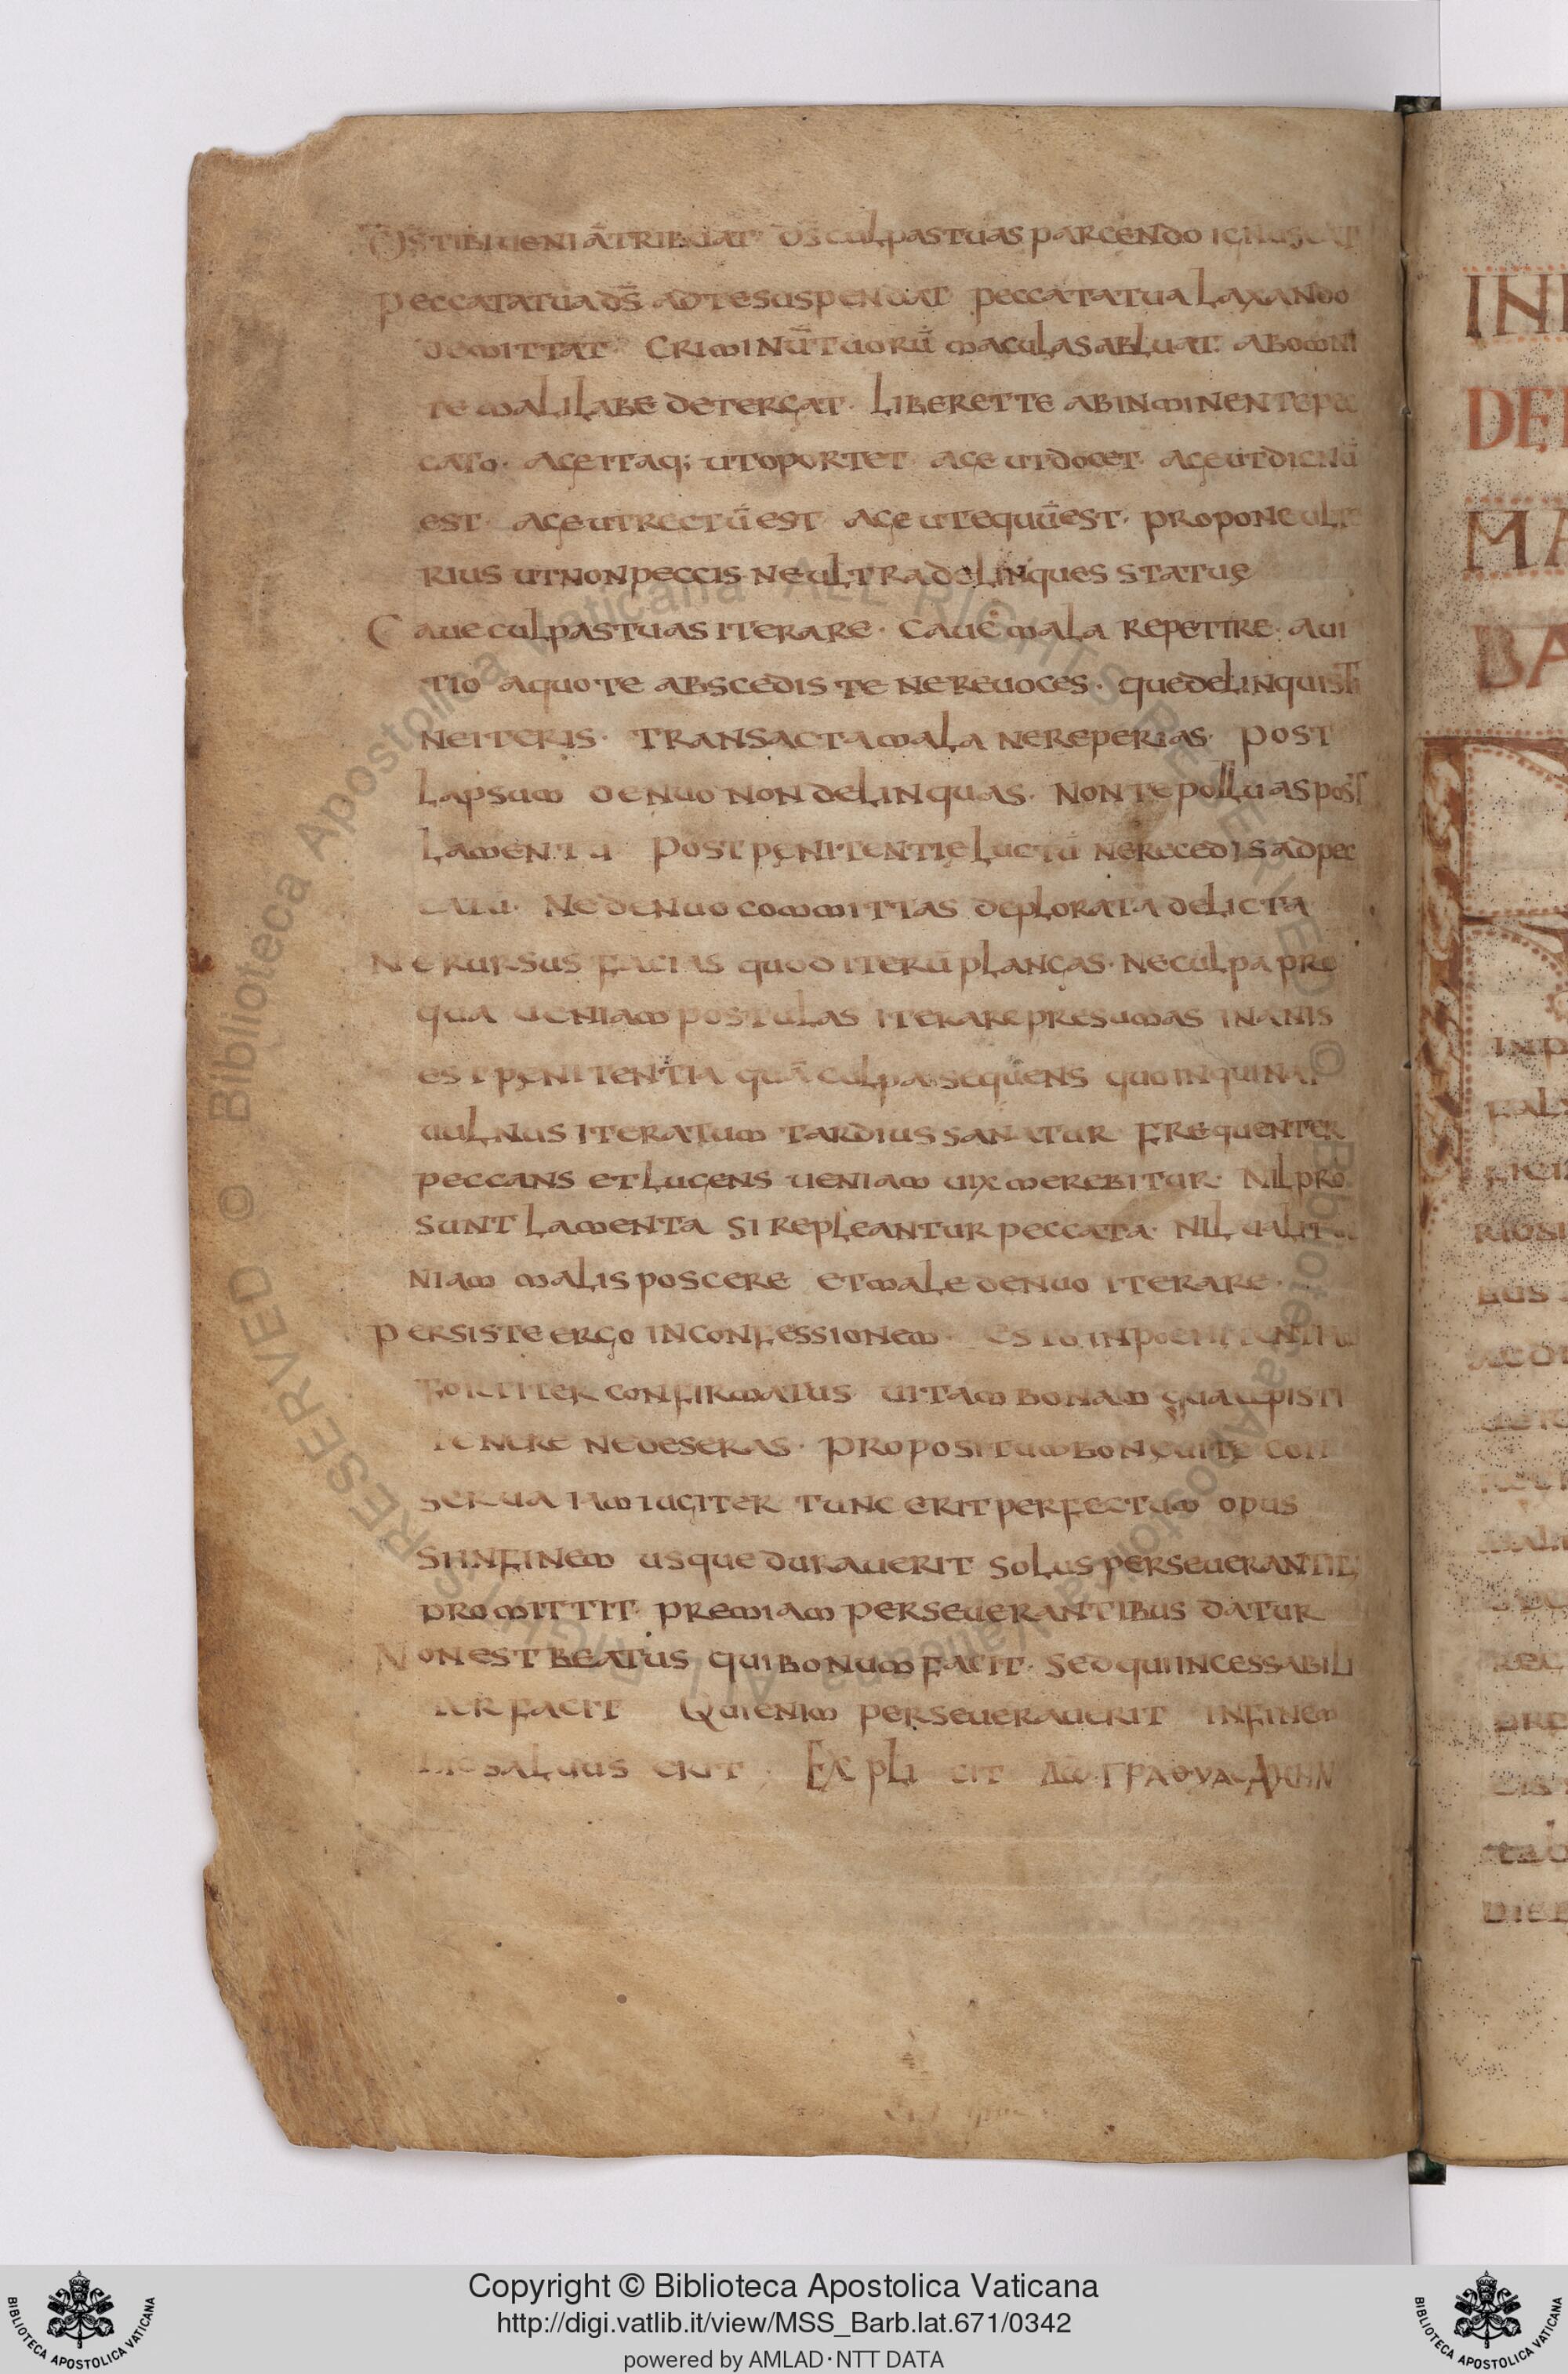 D̄S TIBI UENIĀ TRIBUAT D̄S CULPAS TUAS PARCENDO IGNOSCAT
PECCATA TUA D̄S AD TE SUSPENDAT PECCATA TUA LAXANDO
DEMITTAT· CRIMINŪ TUORŪ MACULAS ABLUAT· AB OMNI
TE MALI LABE DETERGAT· LIBERET TE AB INMINENTE PEC
CATO· AGE ITAQ; UT OPORTET· AGE UT DOCET· AGE UT DIGNŪ
EST· AGE UT RECTŪ EST AGE UT EQUŪ EST· PROPONE ULTE
RIUS UT NON PECCIS· NE ULTRA DELINQUES STATUE
CAUE CULPAS TUAS ITERARE· CAUE MALA REPETIRE· A UI
TIO A QUO TE ABSCEDIS TE NE REUOCES· QUE DELINQUISTI
NE ITERIS· TRANSACTA MALA NE REPERIAS· POST
LAPSUM DENUO NON DELINQUAS· NON TE POLLUAS POST
LAMENTA POST PENITENTIE LUCTŪ NE RECEDIS AD PEC
CATŪ· NE DENUO COMMITTAS DEPLORATA DELICTA
NE RURSUS FACIAS QUOD ITERŪ PLANGAS· NE CULPA PRO
QUA UENIAM POSTULAS ITERARE PRESUMAS INANIS
EST PENITENTIA QUĀ CULPA SEQUENS QUOINQUINAT
UULNUS ITERATUM TARDIUS SANATUR FREQUENTER
PECCANS ET LUGENS UENIAM UIX MEREBITUR· NIL PRO
SUNT LAMENTA SI REPLEANTUR PECCATA· NIL UALIT UE
NIAM MALIS POSCERE ET MALE DENUO ITERARE·
PERSISTE ERGO IN CONFESSIONEM· ESTO IN POENITENTIA
FORTITER CONFIRMATUS· UITAM BONAM QUA CEPISTI
TENERE NE DESERAS· PROPOSITUM BONE UITE CON
SERUA IAM IUGITER TUNC ERIT PERFECTUM OPUS
SI IN FINEM USQUE DURAUERIT SOLUS PERSEUERANTIE
PROMITTIT· PREMIAM PERSEUERANTIBUS DATUR
NON EST BEATUS QUI BONUM FACIT· SED QUI INCESSABILI
TER FACIT QUI ENIM PERSEUERAUERIT IN FINEM
HIC SALUUS ERIT· EXPLICIT
Copyright © Biblioteca Apostolica Vaticana
http://digi.vatlib.it/view/MSS_Barb.lat.671/0342
powered by AMLAD·NTT DATA